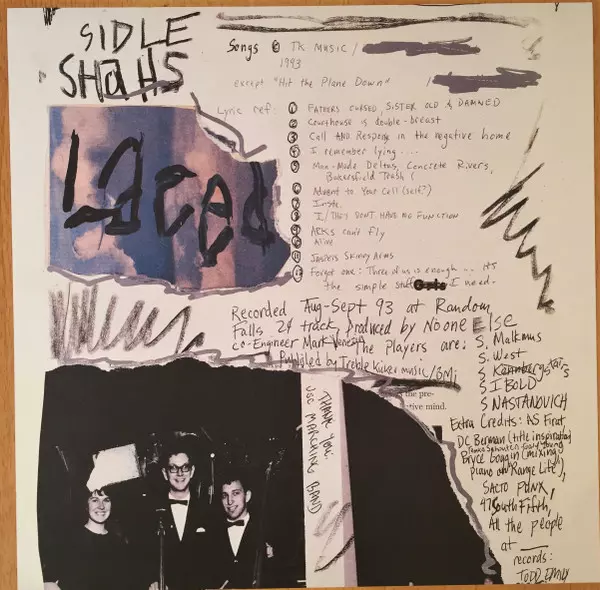 SIDLE
SHaHS
Songs © TK MUSIC /
1993
except "Hit the Plane Down" /
Laced
Lyric ref:
1 FATHERS CURSED, SISTER OLD & DAMNED
2 Courthouse is double-breast
3 Call AND Response in the negative home
4 I remember lying....
5 Man-Made Deltas, Concrete Rivers,
Bakersfield Trash!
6 Advent to Your Cell (self?)
7 Instr.
8 I/THEY DON'T HAVE NO FUNCTION
9 ARKS can't fly
10 Alive
11 JASPERS SKINNY ARMS
12 Forgot one: Three of us is enough... it's
the simple stuff I need.
Recorded Aug-Sept 93 at Random
Falls 24 track, produced by No one ELSE
co-Engineer Mark Venezia The Players are:
Published by Treble Kicker music/BMi
S. Malkmus
S. West
S Kannbergstairs
S IBOLD
S NASTANOVICH
the pre-
tive mind.
THANK YOU:
USC MARCHING BAND
Extra Credits: AS First,
DC Berman (title inspiration)
Bryce Goggin (mixing,
piano on "Range Life"),
SACTO PUNX,
47 South Fifth,
All the people
at ___
records:
TODD EMILY